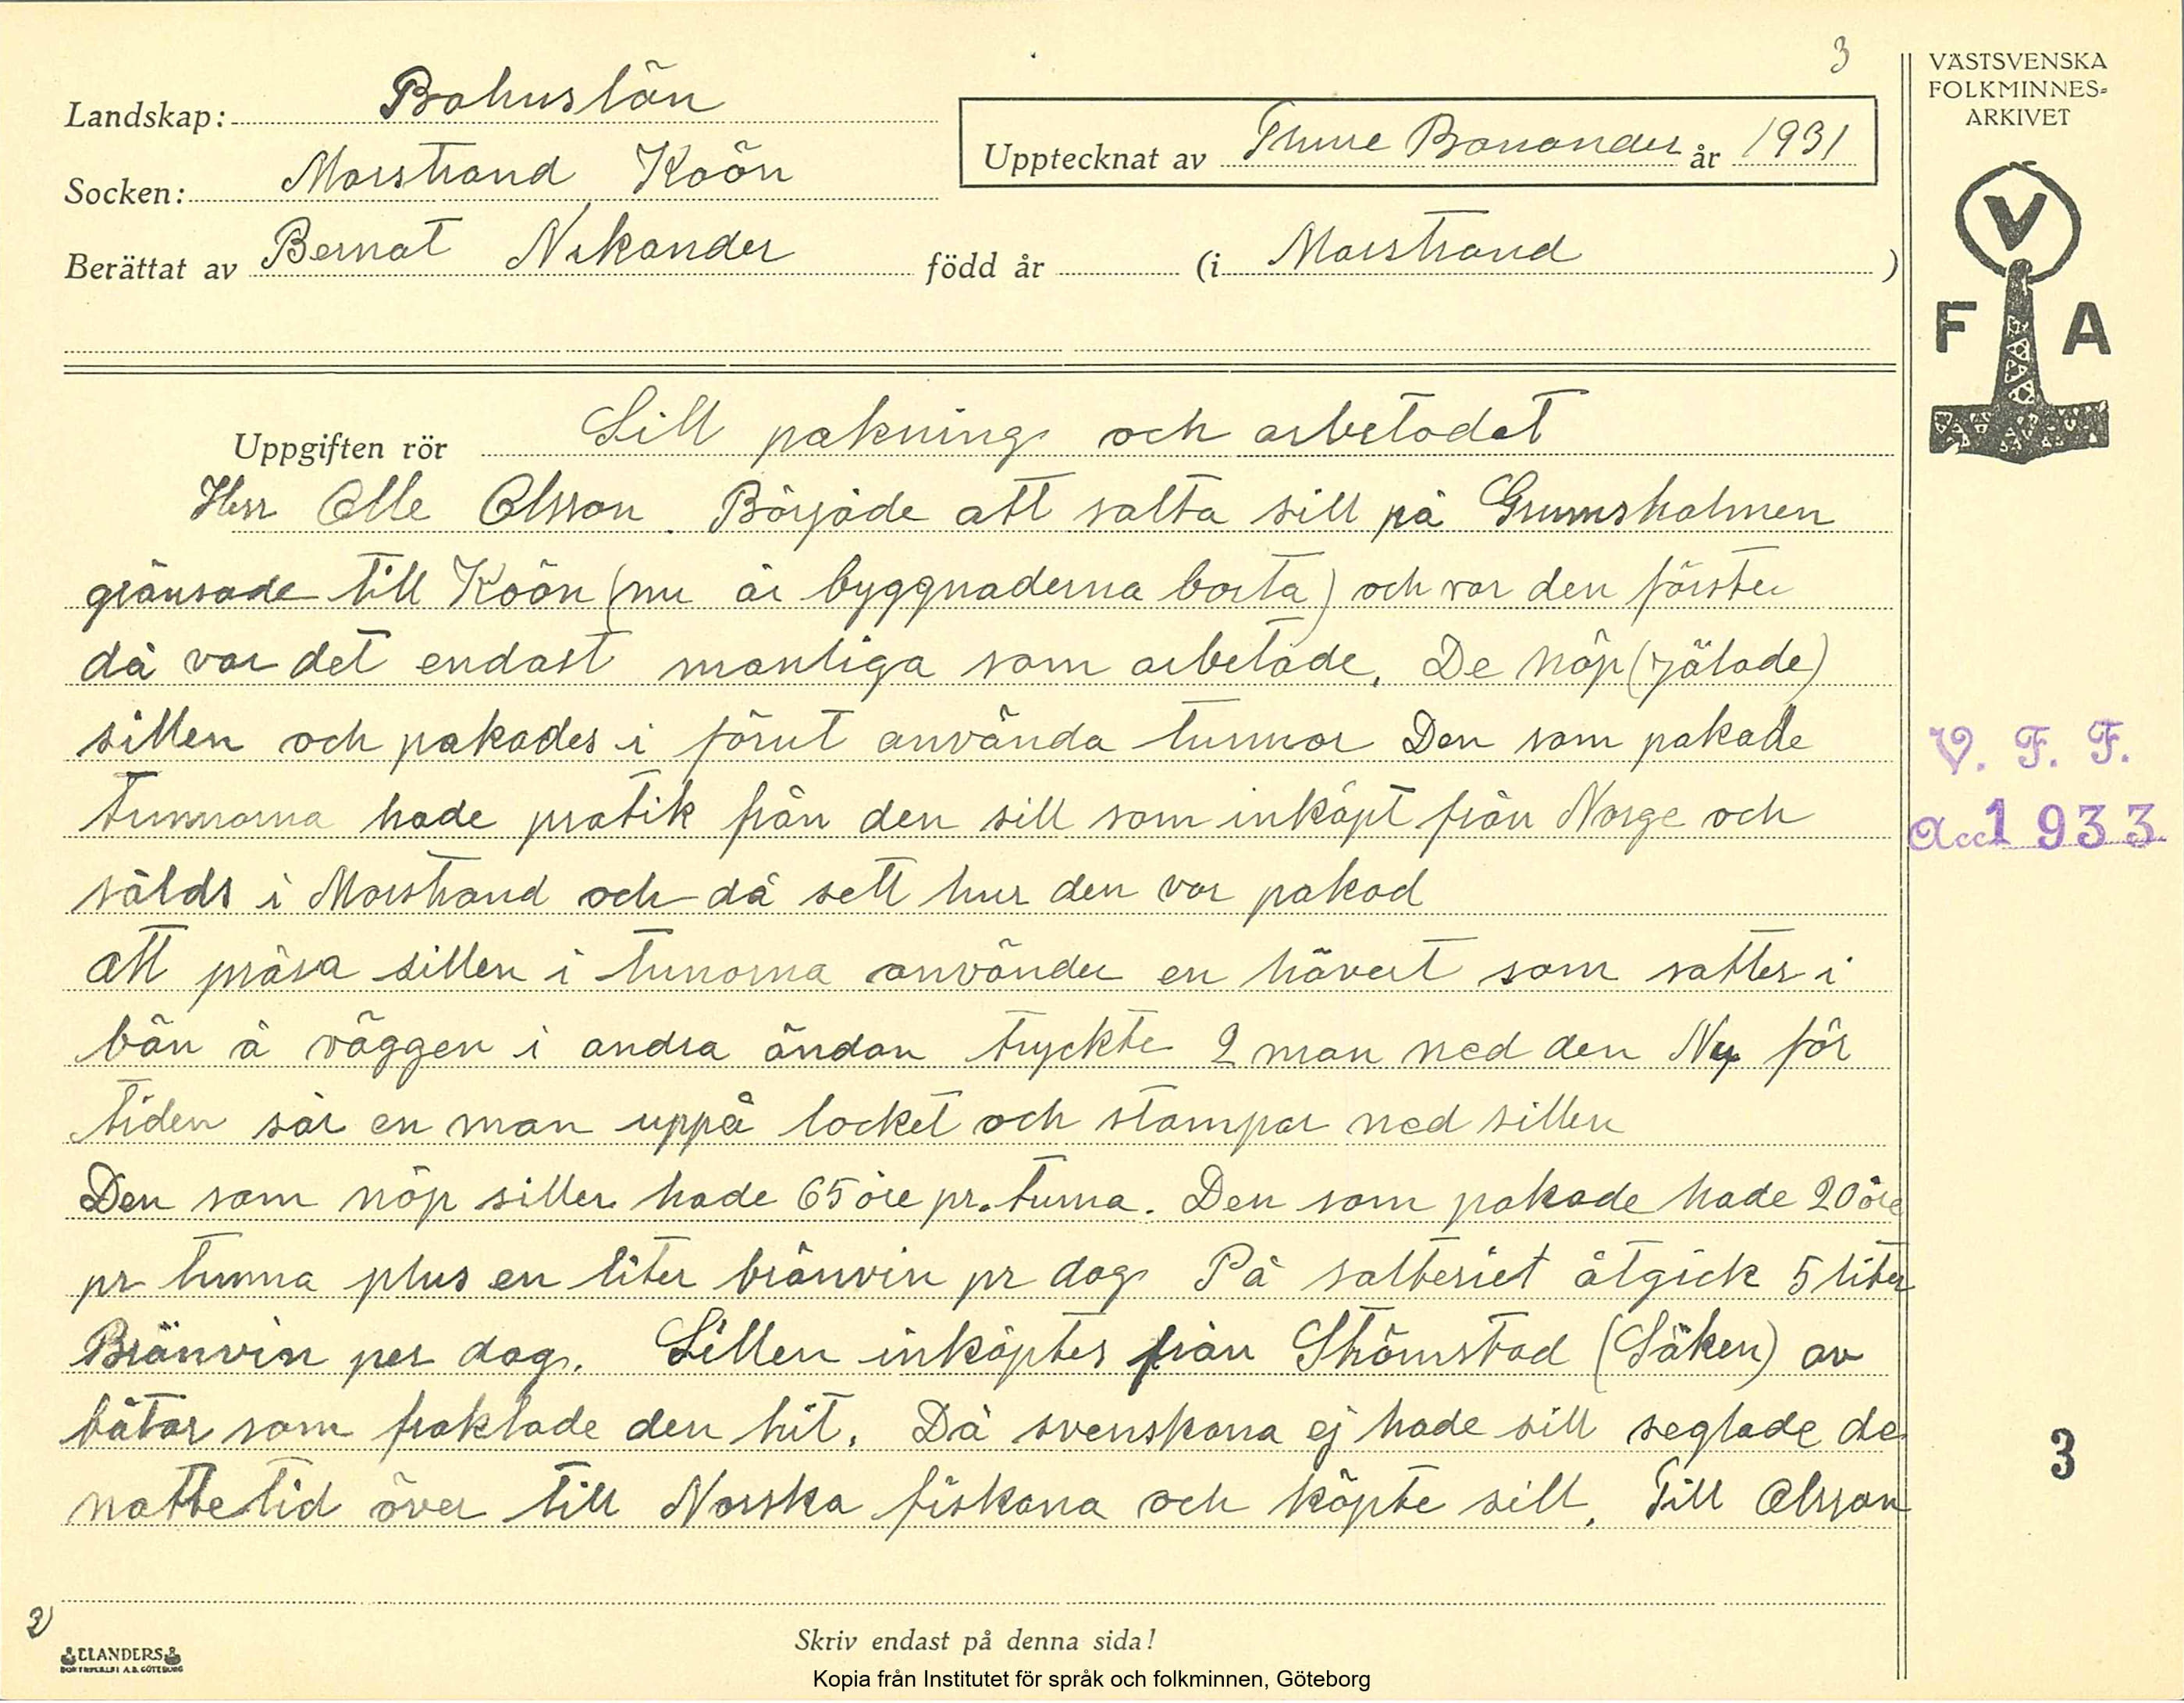 3
VÄSTSVENSKA
FOLKMINNES-
ARKIVET
Landskap: Bohuslän
Upptecknat av Thure Bonander år 1931
Socken: Marstrand Koön
Berättat av Bernat Nikander född år (i Marstrand )
V
F A
Uppgiften rör Sill pakning och arbetadet
Herr Olle Olsson. Börjäde att salta sill på Grumsholmen
gränsade till Koön (nu är byggnaderna borta) och var den förste
då var det endast manliga som arbetade. De nöp (jälade)
sillen och pakades i förut använda tunnor Den som pakade
tunnorna hade pratik från den sill som inköpt från Norge och
sålds i Marstrand och då sett hur den var pakad
att präsa sillen i tunorna använder en hävert som sattes i
bän å väggen i andra ändan tryckte 2 man ned den Nu för
tiden sår en man uppå locket och stampar ned sillen
Den som nöp sillen hade 65 öre pr. tuma. Den som pakade hade 20 öre
pr tunna plus en liter bränvin pr dag På salteriet åtgick 5 liter
Bränvin per dag. Sillen inköptes från Strömstad (Säken) av
båtar som fraktade den hit. Då svenskana ej hade sill seglade de
nattetid över till Norska fiskana och köpte sill. Till Olsson
V. F. F.
Acc 1933
3
2)
ELANDERS
BOKTRYCKERI A.B. GÖTEBORG
Skriv endast på denna sida!
Kopia från Institutet för språk och folkminnen, Göteborg